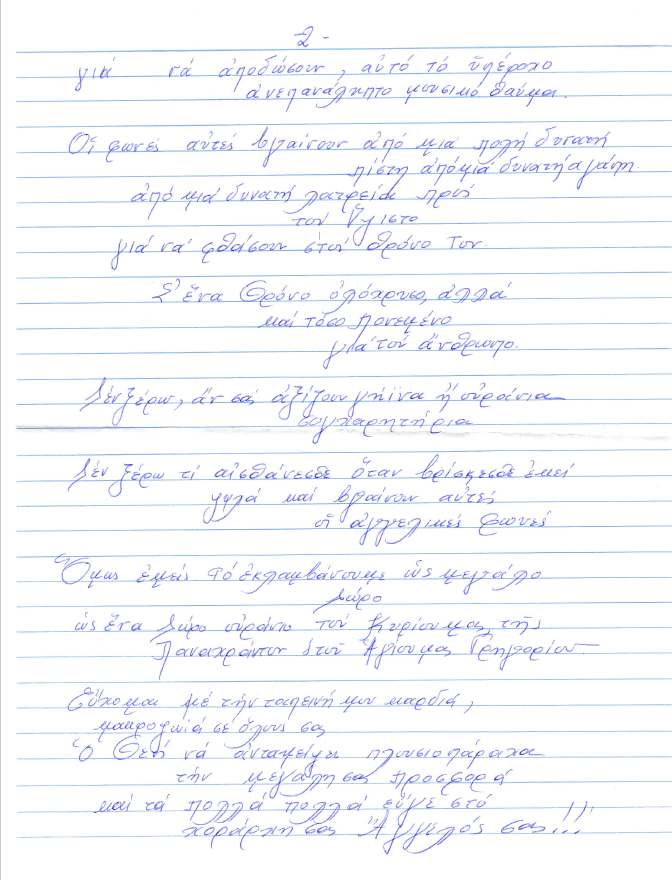 -2-
γιά νά ἀποδώσουν, αὐτό τό ὑπέροχο
ἀνεπανάληπτο μουσικό θαῦμα.
Οἱ φωνές αὐτές βγαίνουν ἀπό μιά πολή δυνατή
πίστη ἀπό μιά δυνατή ἀγάπη.
ἀπό μιά δυνατή λατρεία πρός
τόν Ὕψιστο
γιά νά φθάσουν στόν θρόνο Του.
Σ' ἕνα Θρόνο ὁλόχρυσο, ἀλλά
καί τόσο πονεμένο
γιά τόν ἄνθρωπο.
Δέν ξέρω, ἄν σᾶς ἀξίζουν γήϊνα ἤ οὐράνια
συγχαρητήρια
Δέν ξέρω τί αἰσθάνεσθε ὅταν βρίσκεσθε ἐκεῖ
ψηλά καί βγαίνουν αὐτές
οἱ ἀγγελικές φωνές
Ὅμως ἐμεῖς τό ἐκλαμβάνουμε ὡς μεγάλο
δῶρο
ὡς ἕνα δῶρο οὐράνιο τοῦ Κυρίου μας, τῆς
Παναχράντου & τοῦ Ἁγίου μας Γρηγορίου
Εὔχομαι μέ τήν ταπεινή μου καρδιά,
μακροζωϊά σέ ὅλους σας
ὁ Θεός νά ἀνταμείψει πλουσιοπάροχα
τήν μεγάλη σας προσφορά
καί τά πολλά πολλά εὖγε στό
χοράρχη σας Ἄγγελός σας!!!